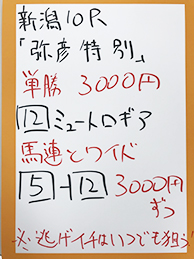 新潟10R
「弥彦特別」
単勝 3000円
12 ミュートロギア
馬連とワイド
5-12 3000円
ずつ
※逃ゲイチはいつでも狙う!